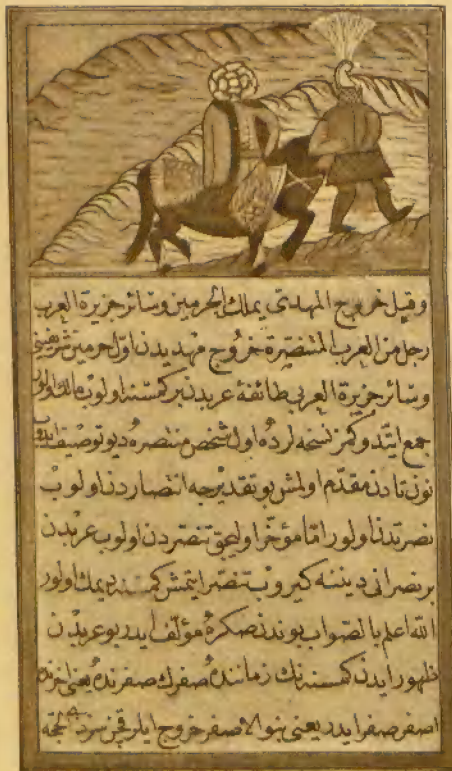 وقبل خروج المهدى يملك الحرمين وسائر جزيرة العرب
رجل من العرب المتنصرة خروج مهديدن اول حرمين شريفينى
وسائر جزيرة العربى طائفۀ عربدن بر كمسنه اولوب مالك اولور
جمع ايتدوكمز نسخه لرده اول شخص متنصره ديو توصيف
نون تادن مقدم اولمش بو تقديرجه انتصاردن اولوب
نصرتدن اولور اما مؤخر اوليجق تنصردن اولوب عربدن
بر نصرانى ديننه كيروب تنصر ايتمش كمسنه ديمك اولور
الله اعلم بالصواب بوندن صكره مؤلف ايدر بو عربدن
ظهور ايدن كمسنه نك زماننده صفرك صفرنده يعنى اخرنده
اصفر صفر ايدر يعنى بنو الاصفر خروج ايلر